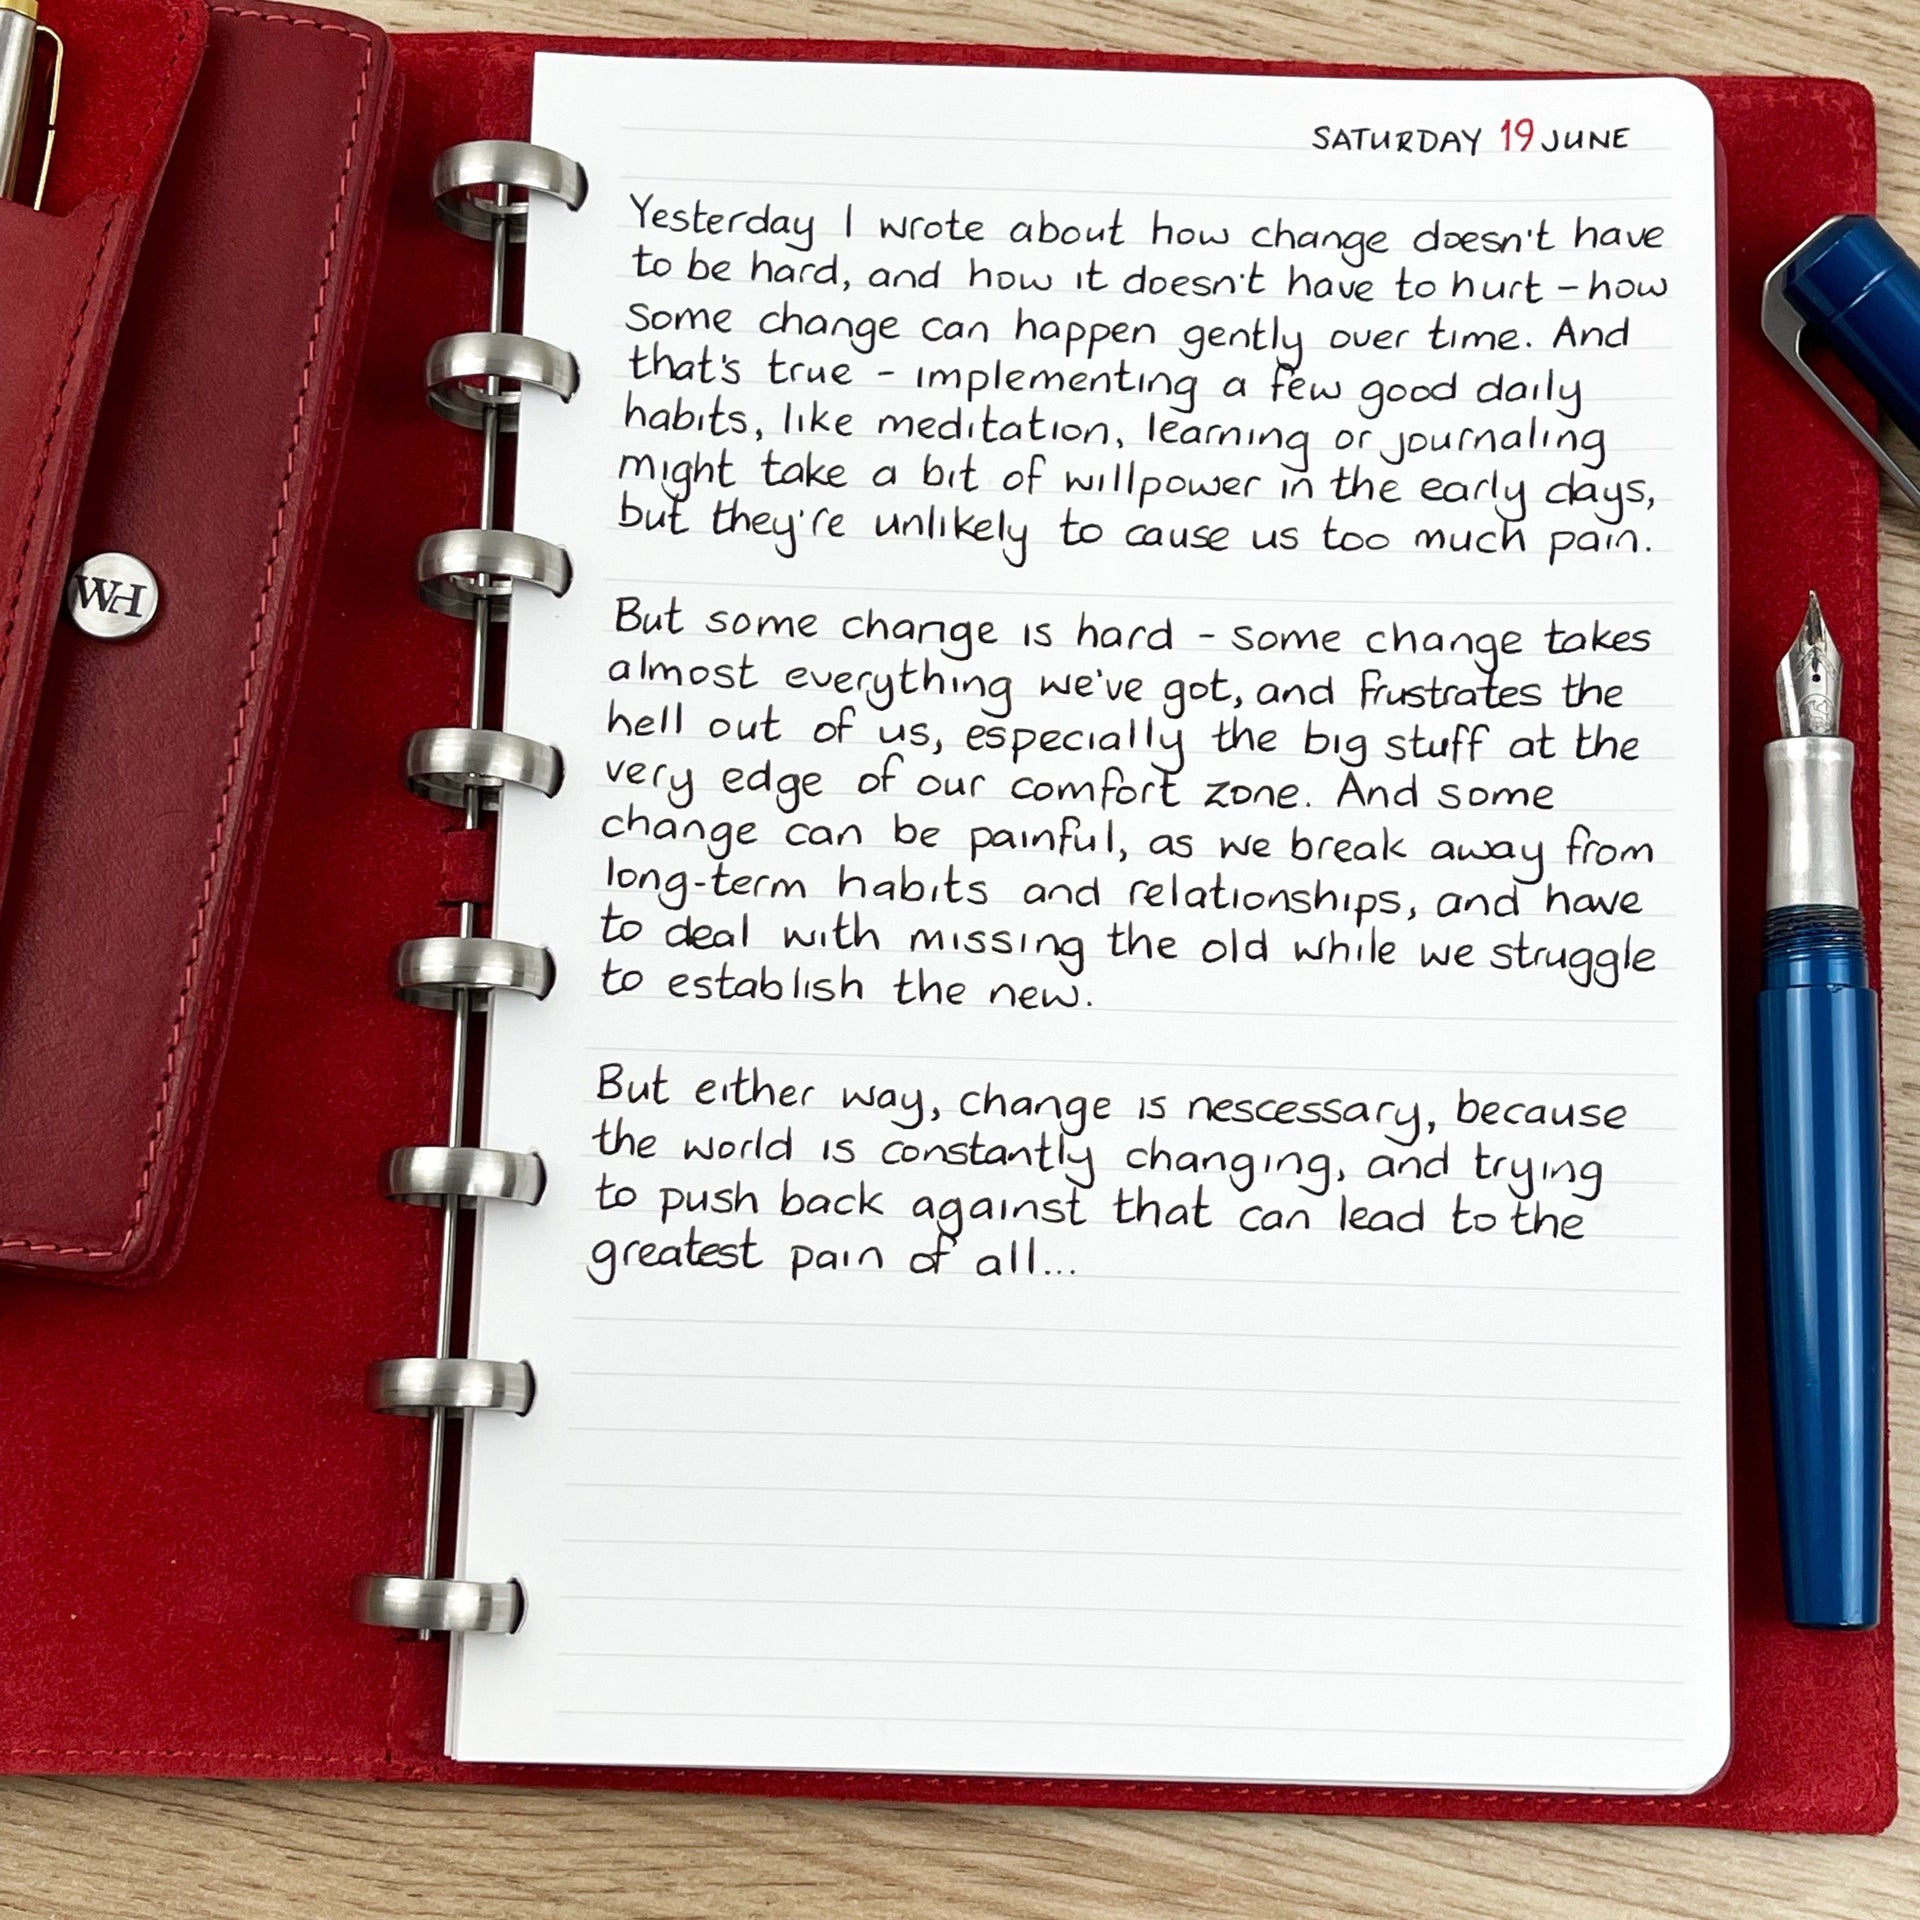 SATURDAY 19 JUNE
Yesterday I wrote about how change doesn't have
to be hard, and how it doesn't have to hurt – how
some change can happen gently over time. And
that's true – implementing a few good daily
habits, like meditation, learning or journaling
might take a bit of willpower in the early days,
but they're unlikely to cause us too much pain.
But some change is hard – some change takes
almost everything we've got, and frustrates the
hell out of us, especially the big stuff at the
very edge of our comfort zone. And some
change can be painful, as we break away from
long-term habits and relationships, and have
to deal with missing the old while we struggle
to establish the new.
But either way, change is nescessary, because
the world is constantly changing, and trying
to push back against that can lead to the
greatest pain of all...
WH